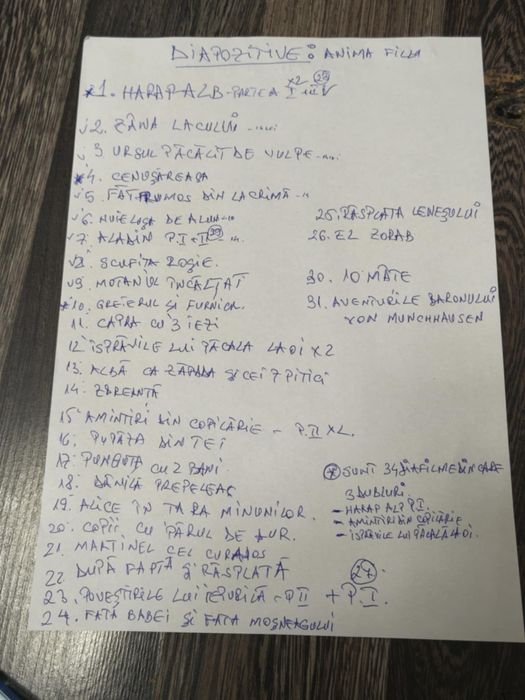 DIAPOZITIVE: ANIMA FILM
*1. HARAP ALB - PARTEA I x2 (29)
√2. ZÂNA LACULUI
√3 URSUL PĂCĂLIT DE VULPE
*4. CENUȘĂREASA
√5. FĂT FRUMOS DIN LACRIMĂ
√6. NUIELUȘA DE ALUN
√7. ALADIN P.I + II (29)
√8. SCUFIȚA ROȘIE.
√9. MOTANUL ÎNCĂLȚAT
*10. GREIERUL ȘI FURNICA.
11. CAPRA CU 3 IEZI
12 ISPRĂVILE LUI PĂCALĂ LA OI X2
13. ALBĂ CA ZĂPADA ȘI CEI 7 PITICI
14. ZDREANȚĂ
15. AMINTIRI DIN COPILĂRIE - P.II X2.
16. PUPĂZA DIN TEI
17. PUNGUȚA CU 2 BANI
18. DĂNILĂ PREPELEAC
19. ALICE ÎN ȚARA MINUNILOR.
20. COPII CU PĂRUL DE AUR.
21. MARTINEL CEL CURAJOS
22. DUPĂ FAPTĂ ȘI RĂSPLATĂ
23. POVEȘTIRILE LUI IEPURILĂ - P II + P.I.
24. FATA BABEI ȘI FATA MOȘNEAGULUI
25. RĂSPLATA LENEȘULUI
26. EL ZORAB
30. 10 MÂȚE
31. AVENTURILE BARONULUI
VON MUNCHHAUSEN
* SUNT 34 DIAFILME DIN CARE
3 DUBLURI
- HARAP ALB P I.
- AMINTIRI DIN COPILĂRIE
- ISPRĂVILE LUI PĂCALĂ LA OI.
(27)